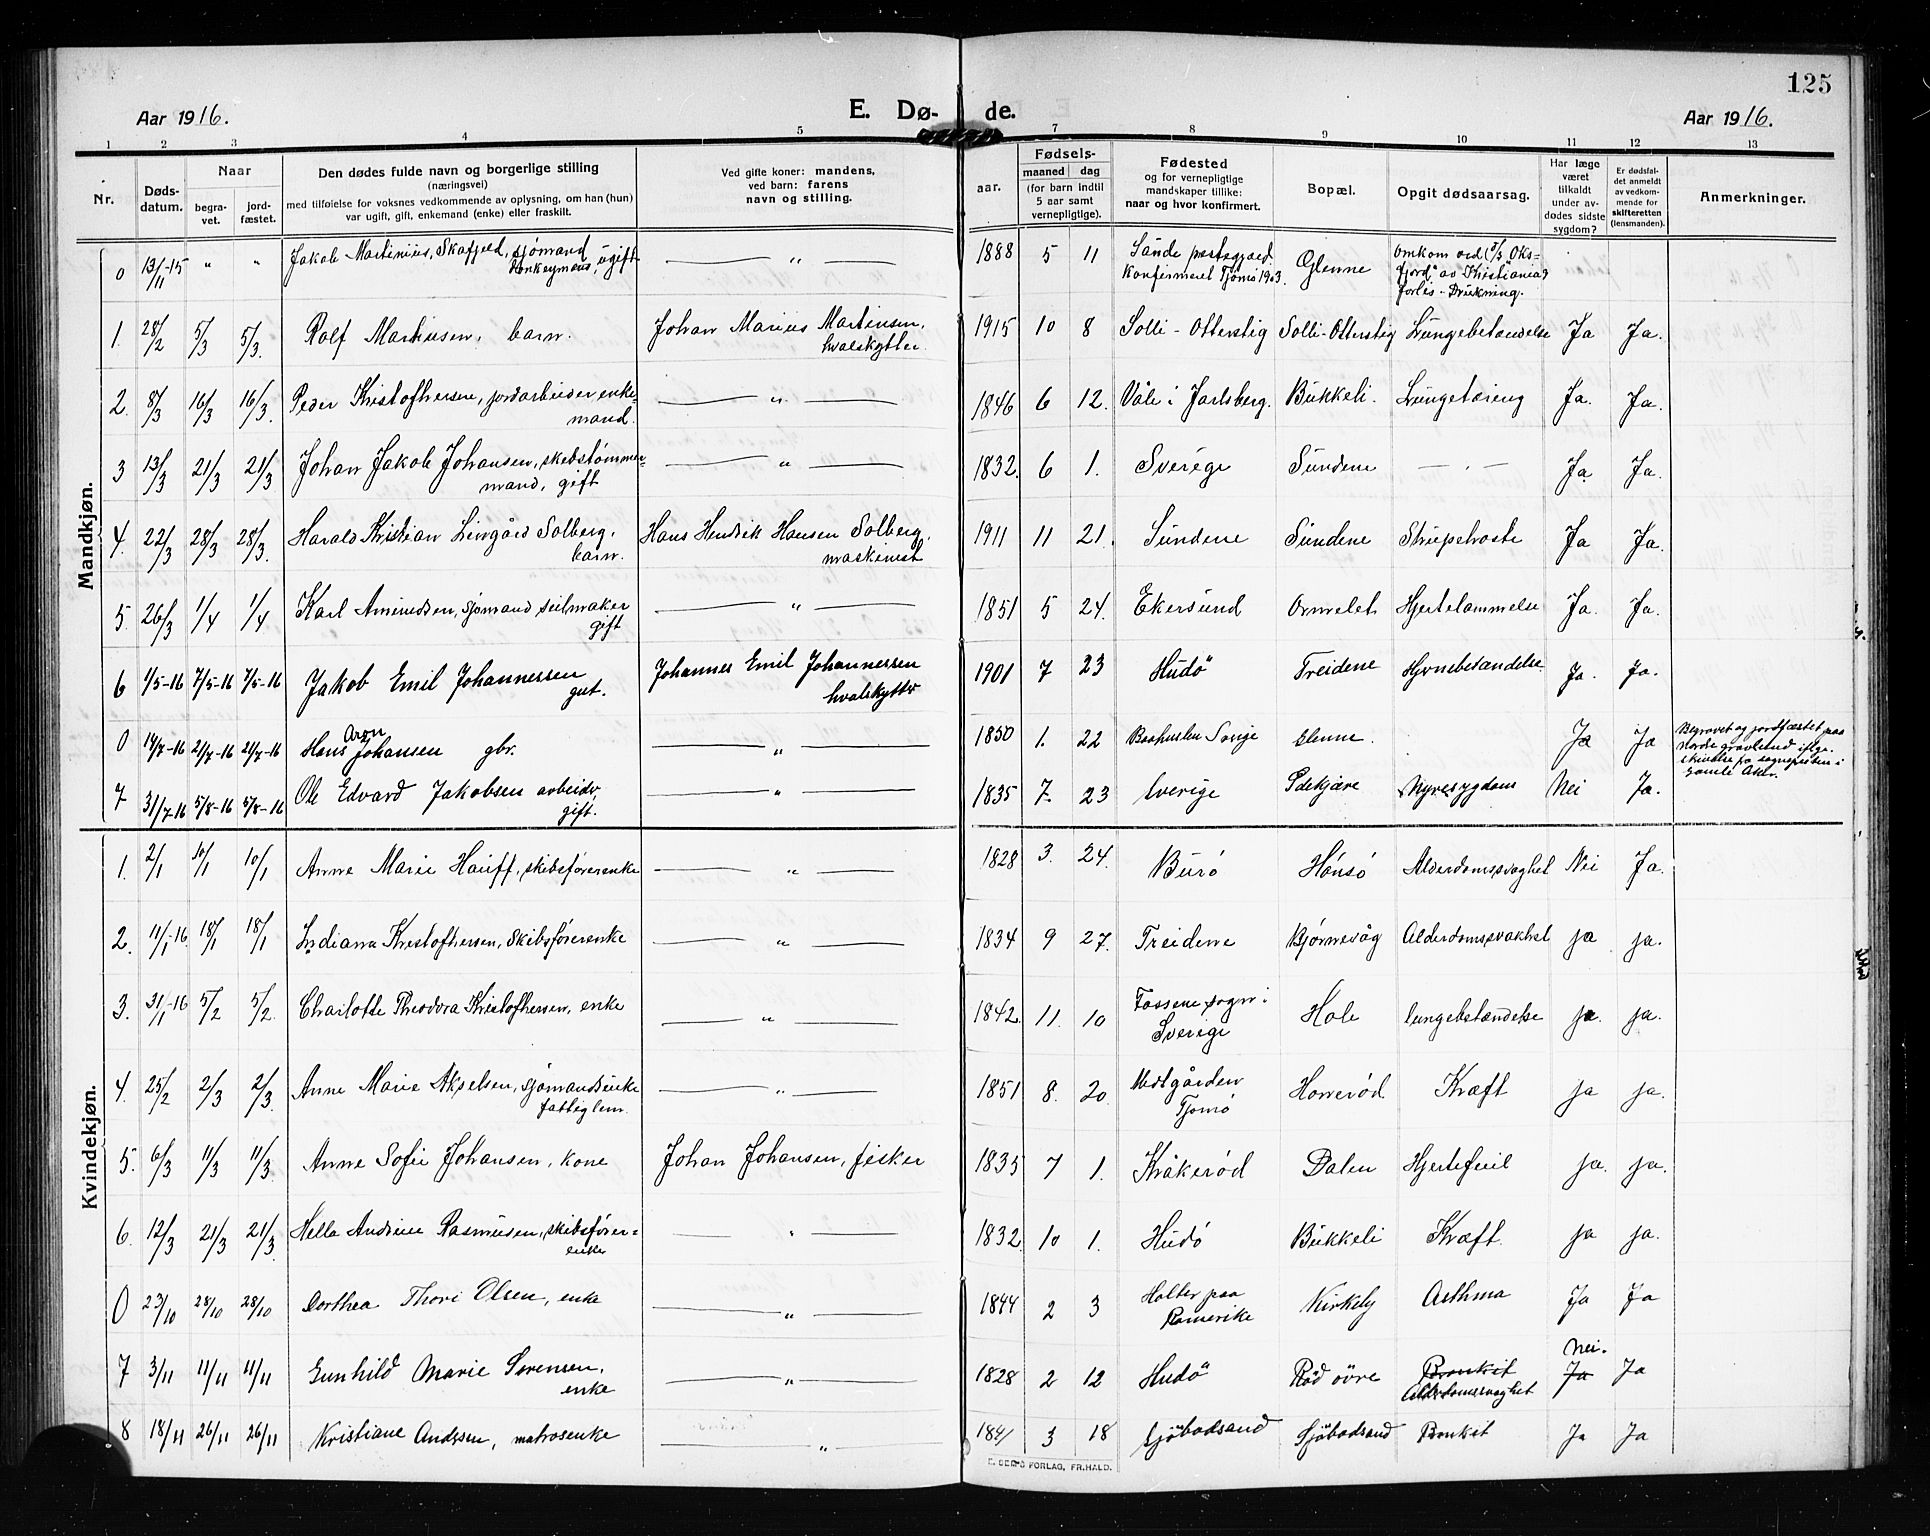 125
Aar 1916.
E. Dø- de.
Aar 1916.
1 2 3 4 5 7 8 9 10 11 12 13
Nr.
Døds-
datum.
Naar
begra-
vet.
jord-
fæstet.
Den dødes fulde navn og borgerlige stilling
(næringsvei)
med tilføielse for voksnes vedkommende av oplysning, om han (hun)
var ugift, gift, enkemand (enke) eller fraskilt.
Ved gifte koner: mandens,
ved barn: farens
navn og stilling.
aar.
Fødsels-
maaned dag
(for barn indtil
5 aar samt
vernepligtige).
Fødested
og for vernepligtige
mandskaper tillike:
naar og hvor konfirmert.
Bopæl.
Opgit dødsaarsag.
Har læge
været
tilkaldt
under av-
dødes sidste
sygdom?
Er dødsfal-
det anmeldt
av vedkom-
mende for
skifteretten
(lensmanden).
Anmerkninger.
Mandkjøn.
0 13/11-15 " " Jakob Martinius, Skafjeld, sjømand donkeymand, ugift " 1888 5 11 Sande præstegjæld Konfirmeret Tjømø 1903 Glenne Omkom ved D/S "Oksfjord" av Kristiania's forlis - Drukning.
1. 28/2 5/3 5/3. Rolf Martinsen, barn. Johan Marius Martinsen, hvalskytter. 1915 10 8 Solli - Otterstig Solli-Otterstig Lungebetændelse Ja Ja.
2. 8/3 16/3 16/3. Peder Kristoffersen, jordarbeider enke- mand. " 1846 6 12. Våle i Jarlsberg. Bukkeli. Lungetæring Ja. Ja.
3 13/3 21/3 21/3 Johan Jakob Johansen, skibstømmer- mand, gift " 1832. 6 1. Sverige Sundene — . — Ja. Ja.
4. 22/3 28/3 28/3. Harald Kristian Livgård Solberg, barn. Hans Hendrik Hansen Solberg, maskinist 1911 11 21. Sundene Sundene Strupehoste Ja Ja.
5. 26/3 1/4 1/4 Karl Amundsen, sjømand seilmaker gift " 1851 5 24. Ekersund Ormelet Hjertelammelse Ja. Ja.
6 1/5-16 7/5-16 7/5-16 Jakob Emil Johannessen gut. Johannes Emil Johannessen hvalskytter 1901 7 23 Hudö Treidene Hjernebetændelse Ja. Ja.
0 14/7-16 21/7-16 21/7-16 Hans Aron Johansen gbr. " 1850 1. 22 Baahuslen Sverige Glenne. Ja Ja Begravet og jordfæstet paa Nordre gravlund ifølge. skrivelse fra sognepresten i Gamle Aker.
7 31/7-16 5/8-16 5/8-16 Ole Edvard Jakobsen arbeider, gift. " 1835 7 23 Sverige Gdekjære Nyresygdom Nei Ja.
Kvindekjøn.
1. 2/1 10/1 10/1 Anne Marie Hauff, skibsførerenke " 1828 3. 24. Burø Hönsö Alderdomssvaghet Nei Ja.
2. 11/1-16. 18/1 18/1 Indiana Kristoffersen, skibsførerenke " 1834 9 27. Treidene Bjørnevåg Alderdomssvakhet ja ja.
3. 31/1-16 5/2 5/2. Charlotte Theodora Kristoffersen, enke " 1842. 11. 10 Fossene sogn i Sverige Hole lungebetændelse ja. ja.
4. 25/2 2/3 2/3. Anne Marie Akselsen, sjømandsenke fattiglem. " 1851 8. 20. Medgården Tjømø Honnerød Kræft ja ja.
5. 6/3 11/3 11/3. Anne Sofie Johansen, kone Johan Johansen, fisker 1835 7 1. Kråkerød Dalen Hjertefeil ja. ja.
6. 12/3 21/3 21/3. Helle Andrine Rasmusen, skibsfører= enke " 1832. 10 1. Hudø Bukkeli Kræft. ja ja.
0 23/10 28/10 28/10 Dorthea Thori Olsen, enke " 1844 2 3 Holter paa Romerike Kirkely Asthma Ja Ja
7 3/11 11/11 11/11 Gunhild Marie Sørensen, enke " 1828 2 12 Hudö Rød övre Bronkit Alderdomssvaghet Nei. Ja Ja
8 18/11 26/11 26/11 Kristiane Andersen, matrosenke " 1841 3 18 Sjöbodsand Sjöbodsand Bronkit Ja Ja
E. SEM'S FORLAG, FR.HALD.